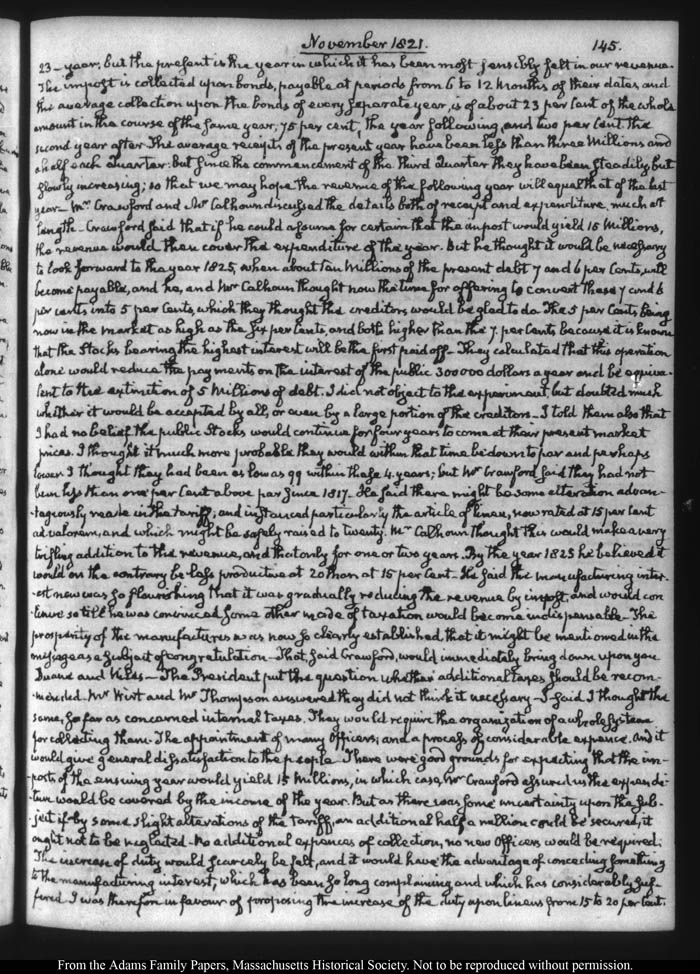 November 1821.
145.
23 – year; but the present is the year in which it has been most sensibly felt in our revenue.
The impost is collected upon bonds, payable at periods from 6 to 12 months of their dates, and
the average collection upon the bonds of every separate year, is of about 23 per Cent of the whole
amount in the course of the same year, 75 per cent, the year following, and two per Cent. the
second year after. The average receipts of the present year have been less than three Millions and
a half each Quarter. But since the commencement of the third Quarter they have been steadily but
slowly increasing; so that we may hope the revenue of the following year will equal that of the last
year – Mr Crawford and Mr Calhoun discussed the details both of receipt and expenditure much at
length – Crawford said that if he could assume for certain that the impost would yield 15 Millions,
the revenue would then cover the expenditure of the year. But he thought it would be necessary
to look forward to the year 1825, when about ten Millions of the present debt 7 and 6 per Cents, will
become payable, and he, and Mr Calhoun thought now the time for offering to convert these 7 and 6
per cents, into 5 per Cents, which they thought the creditors would be glad to do. The 5 per Cents, being
now in the market as high as the six per Cents, and both higher than the 7. per Cents because it is known
that the Stocks bearing the highest interest will be the first paid off – They calculated that this operation
alone would reduce the payments on the interest of the public 300000 dollars a year and be equiva-
lent to the extinction of 5 Millions of debt. I did not object to the experiment, but doubted much
whether it would be accepted by all, or even by a large portion of the creditors – I told them also that
I had no belief the public Stocks would continue for four years to come at their present market
prices. I thought it much more probable they would within that time be down to par and perhaps
lower. I thought they had been as low as 99 within these 4. years; but Mr Crawford said they had not
been less than one per Cent above par since 1817. He said there might be some alteration advan-
tageously made in the tariff; and instanced particularly the article of linen, now rated at 15 per Cent
ad valorem, and which might be safely raised to twenty. Mr Calhoun thought this would make a very
trifling addition to the revenue, and that only for one or two years. By the year 1825 he believed it
would on the contrary be less productive at 20 than at 15 per Cent – He said the manufacturing inter-
est now was so flourishing that it was gradually reducing the revenue by impost, and would con
tinue so till he was convinced some other mode of taxation would become indispensable – The
prosperity of the manufactures was now so clearly established, that it might be mentioned in the
message as a subject of congratulation – That, said Crawford, would immediately bring down upon you
Duane and Niles – The President put the question whether additional taxes should be recom-
mended. Mr Wirt and Mr Thompson answered they did not think it necessary – I said I thought the
same, so far as concerned internal taxes. They would require the organization of a whole system
for collecting them. The appointment of many Officers; and a process of considerable expence, and it
would give general dissatisfaction to the people. There were good grounds for expecting that the im-
posts of the ensuing year would yield 15 Millions, in which case, Mr Crawford assured us the expendi-
ture would be covered by the income of the year. But as there was some uncertainty upon the sub-
ject if by some slight alterations of the tariff, an additional half a million could be secured, it
ought not to be neglected – No additional expences of collection, no new Officers would be required;
The increase of duty would scarcely be felt, and it would have the advantage of conceding something
to the manufacturing interest, which has been so long complaining and which has considerably suf-
fered. I was therefore in favour of proposing the increase of the duty upon linens from 15 to 20 per Cent.
From the Adams Family Papers, Massachusetts Historical Society. Not to be reproduced without permission.